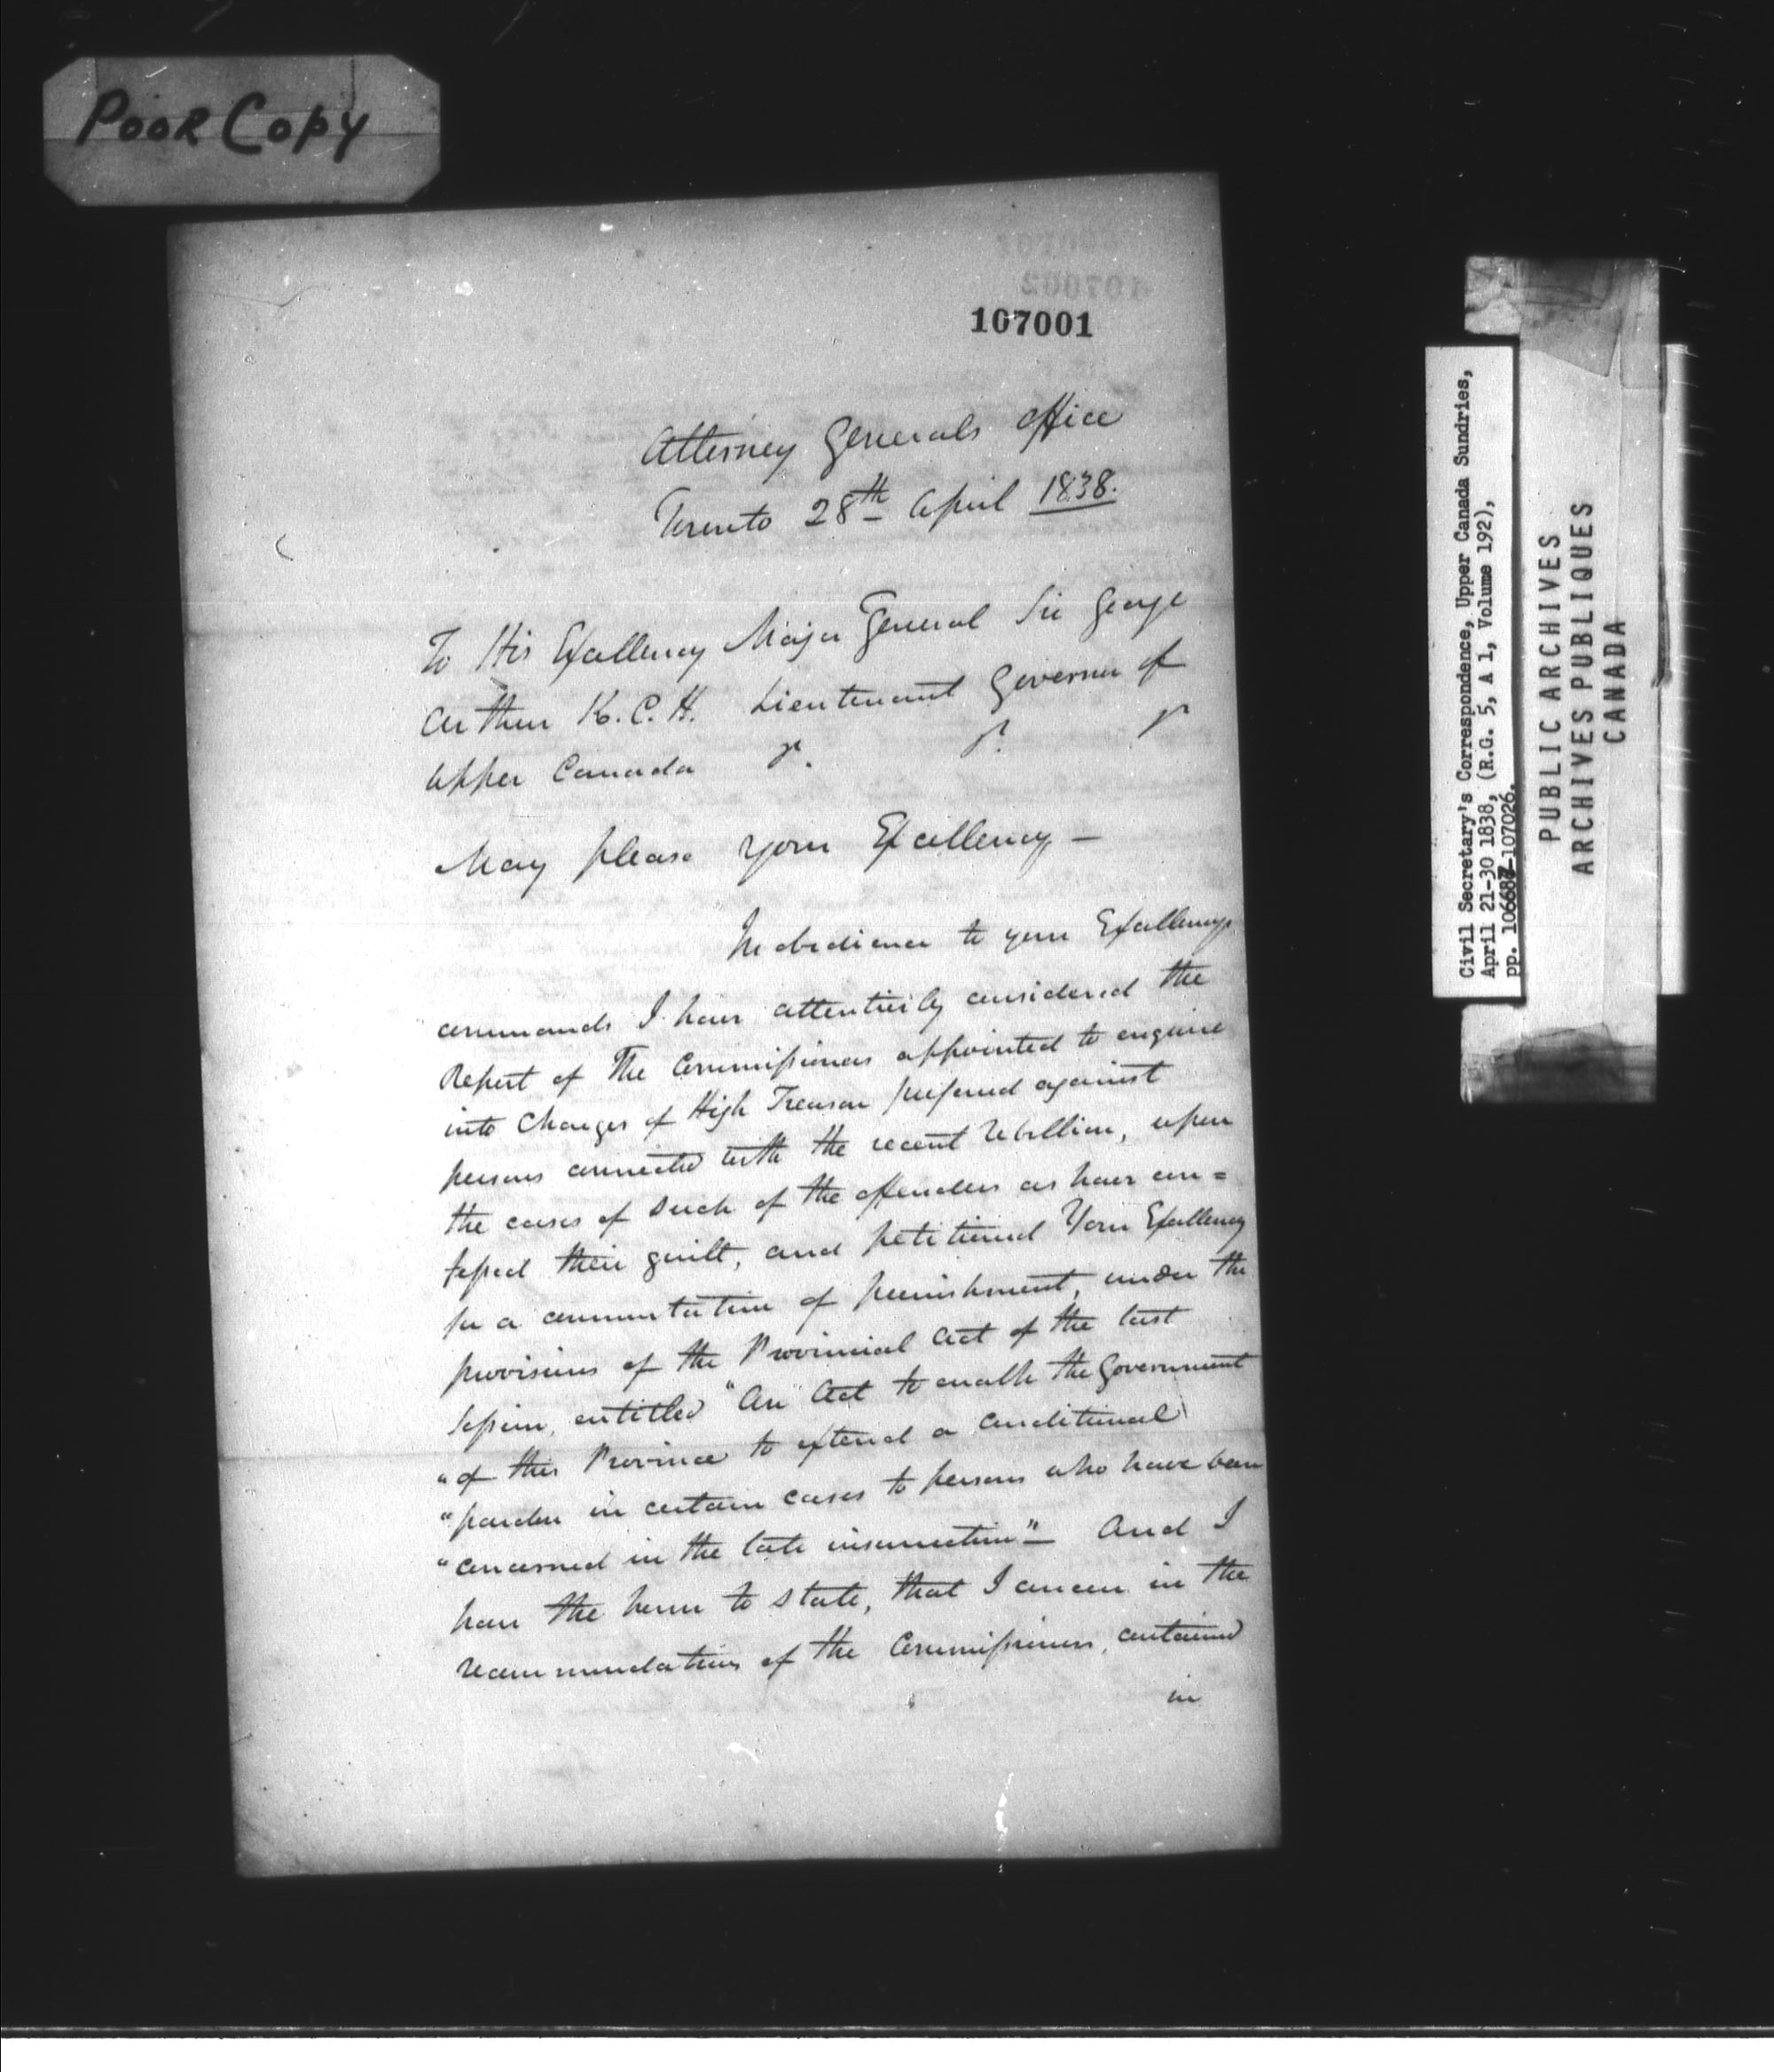 Poor Copy
107002
107001
Attorney Generals Office
Toronto 28th April 1838.
To His Excellency Major General Sir George
Arthur K.C.H. Lieutenant Governor of
Upper Canada
May please your Excellency —
In obedience to your Excellencys
commands I have attentively considered the
Report of The Commissioners appointed to enquire
into Charges of High Treason preferred against
persons connected with the recent rebellion, upon
the cases of such of the offenders as have con=
fessed their guilt, and petitioned Your Excellency
for a commutation of punishment, under the
provisions of the Provincial Act of the last
Session, entitled "An Act to enable the Government
"of this Province to extend a conditional
"pardon in certain cases to persons who have been
"concerned in the late insurrection" — And I
have the honor to state, that I concur in the
recommendations of the Commissioners, contained
in
Civil Secretary's Correspondence, Upper Canada Sundries,
April 21-30 1838, (R.G. 5, A 1, Volume 192),
pp. 106687-107026.
PUBLIC ARCHIVES
ARCHIVES PUBLIQUES
CANADA